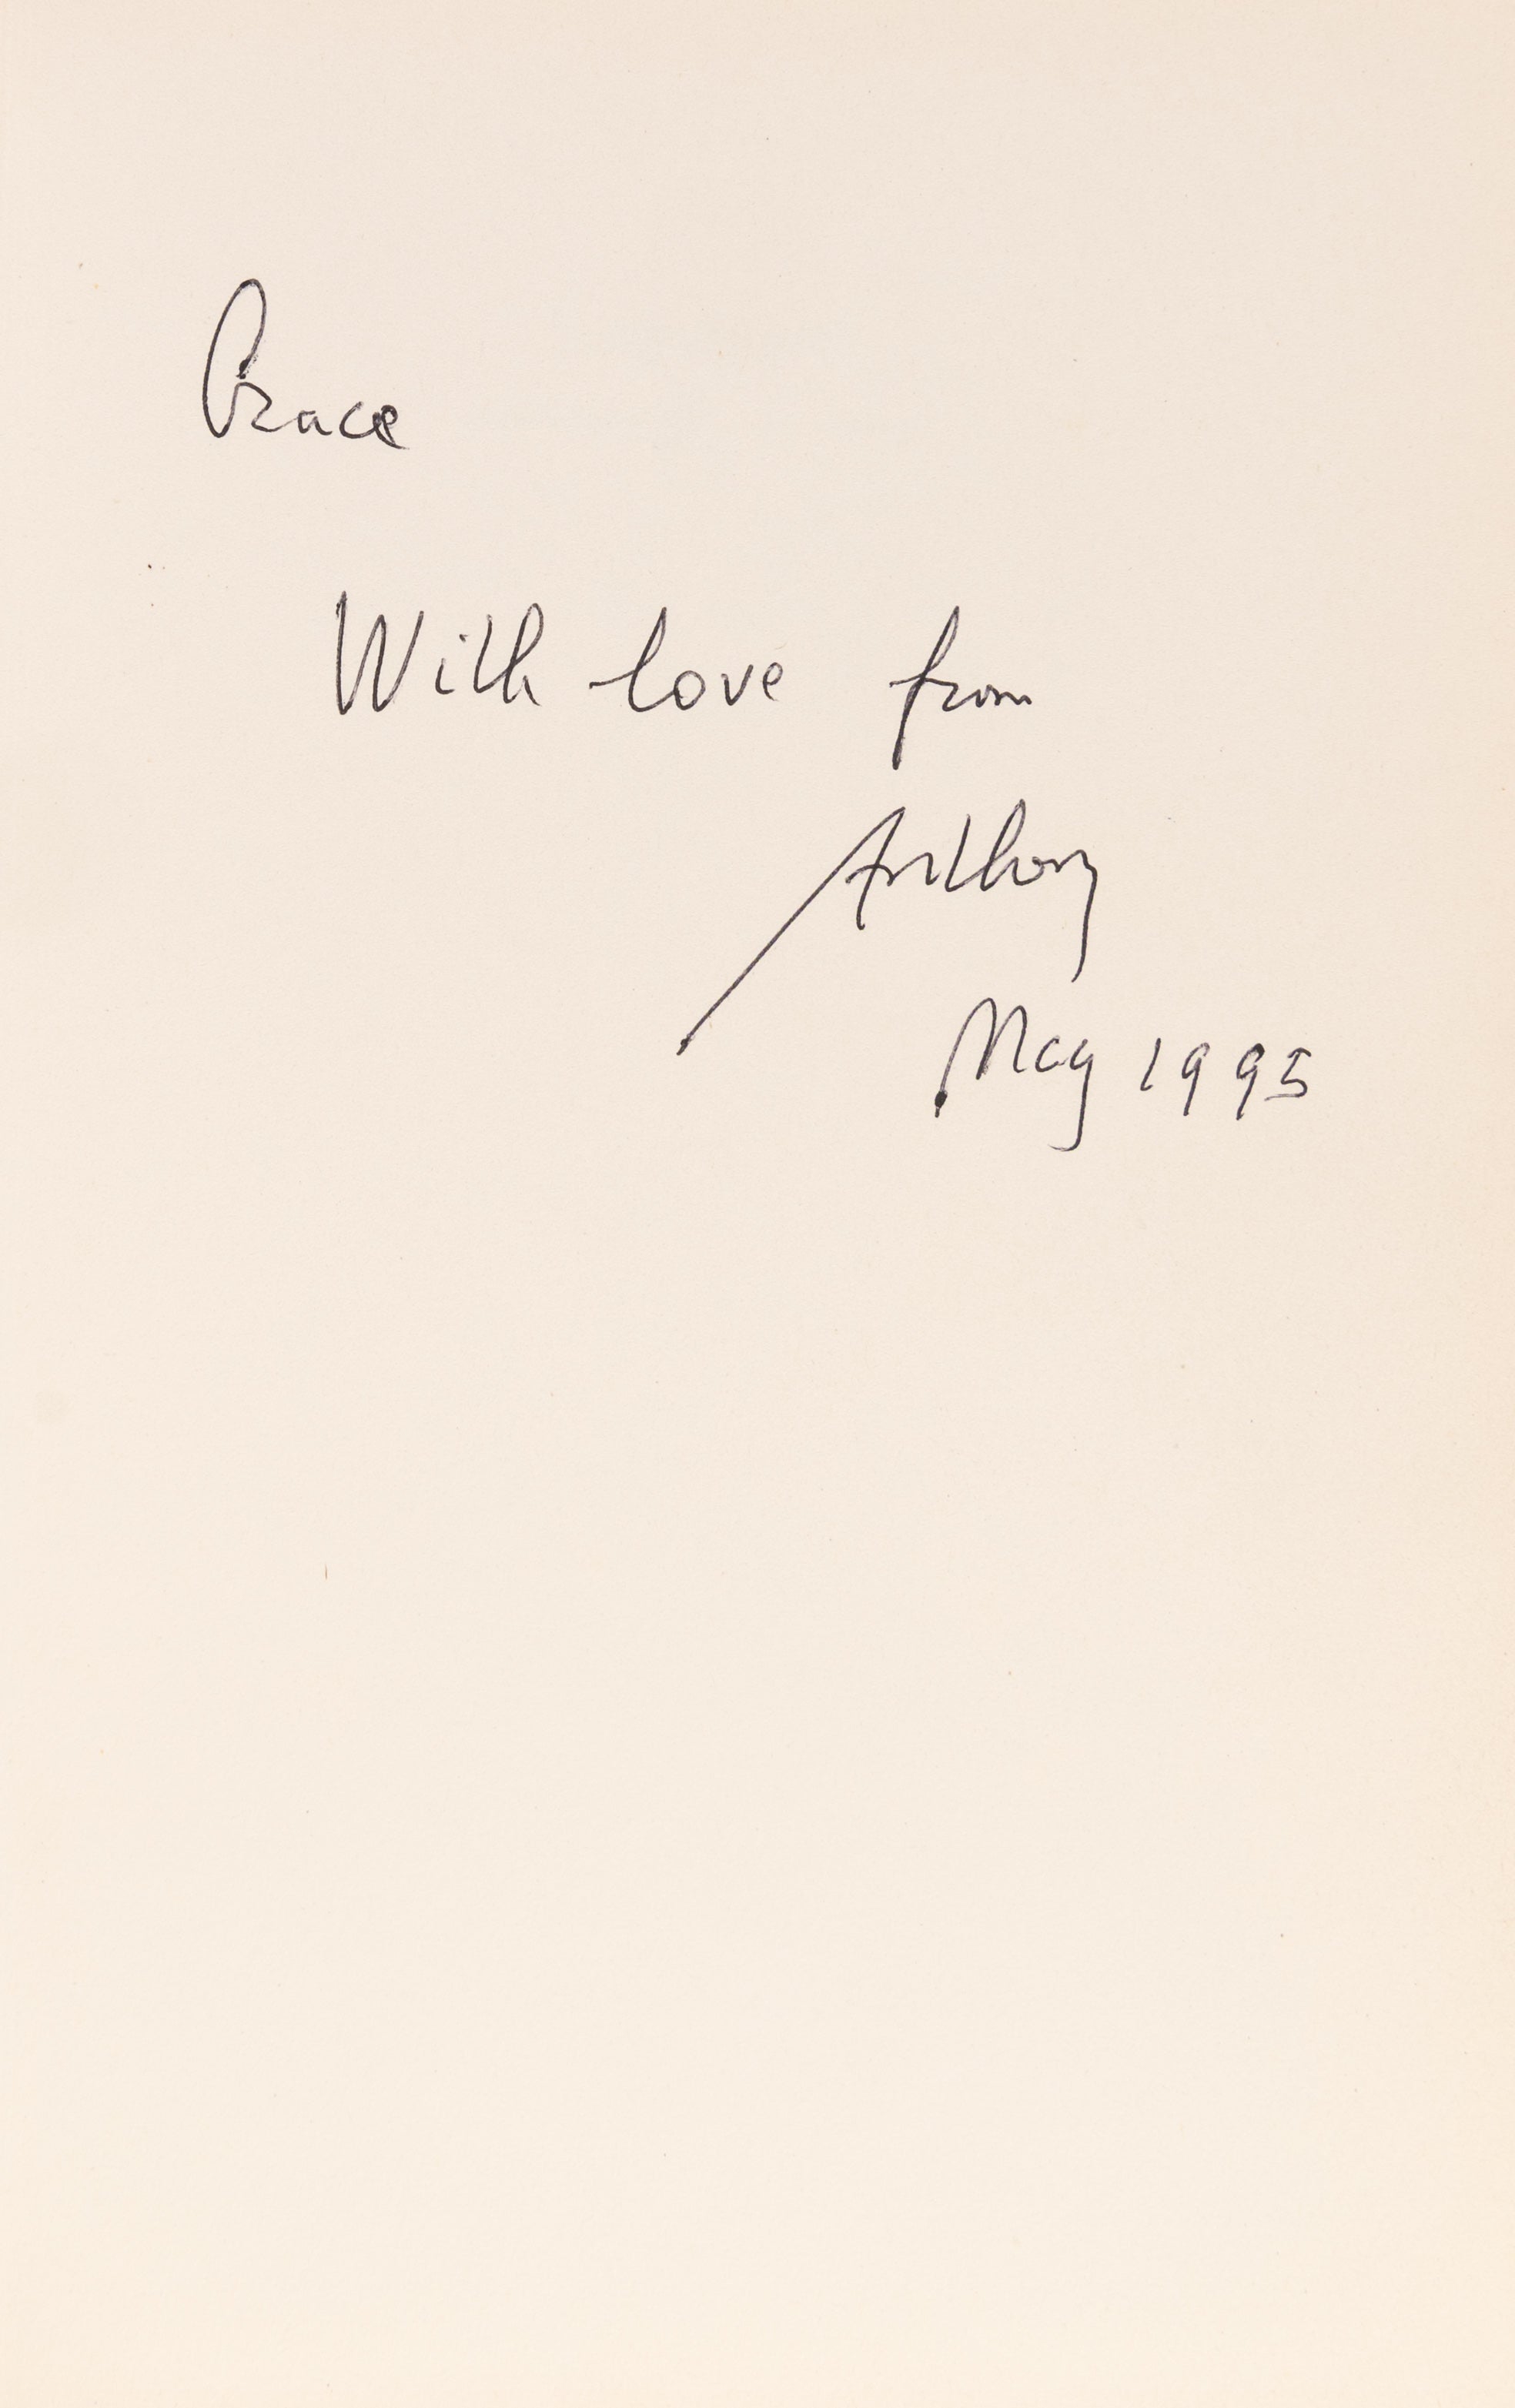 Grace
With love from
Anthony
May 1995